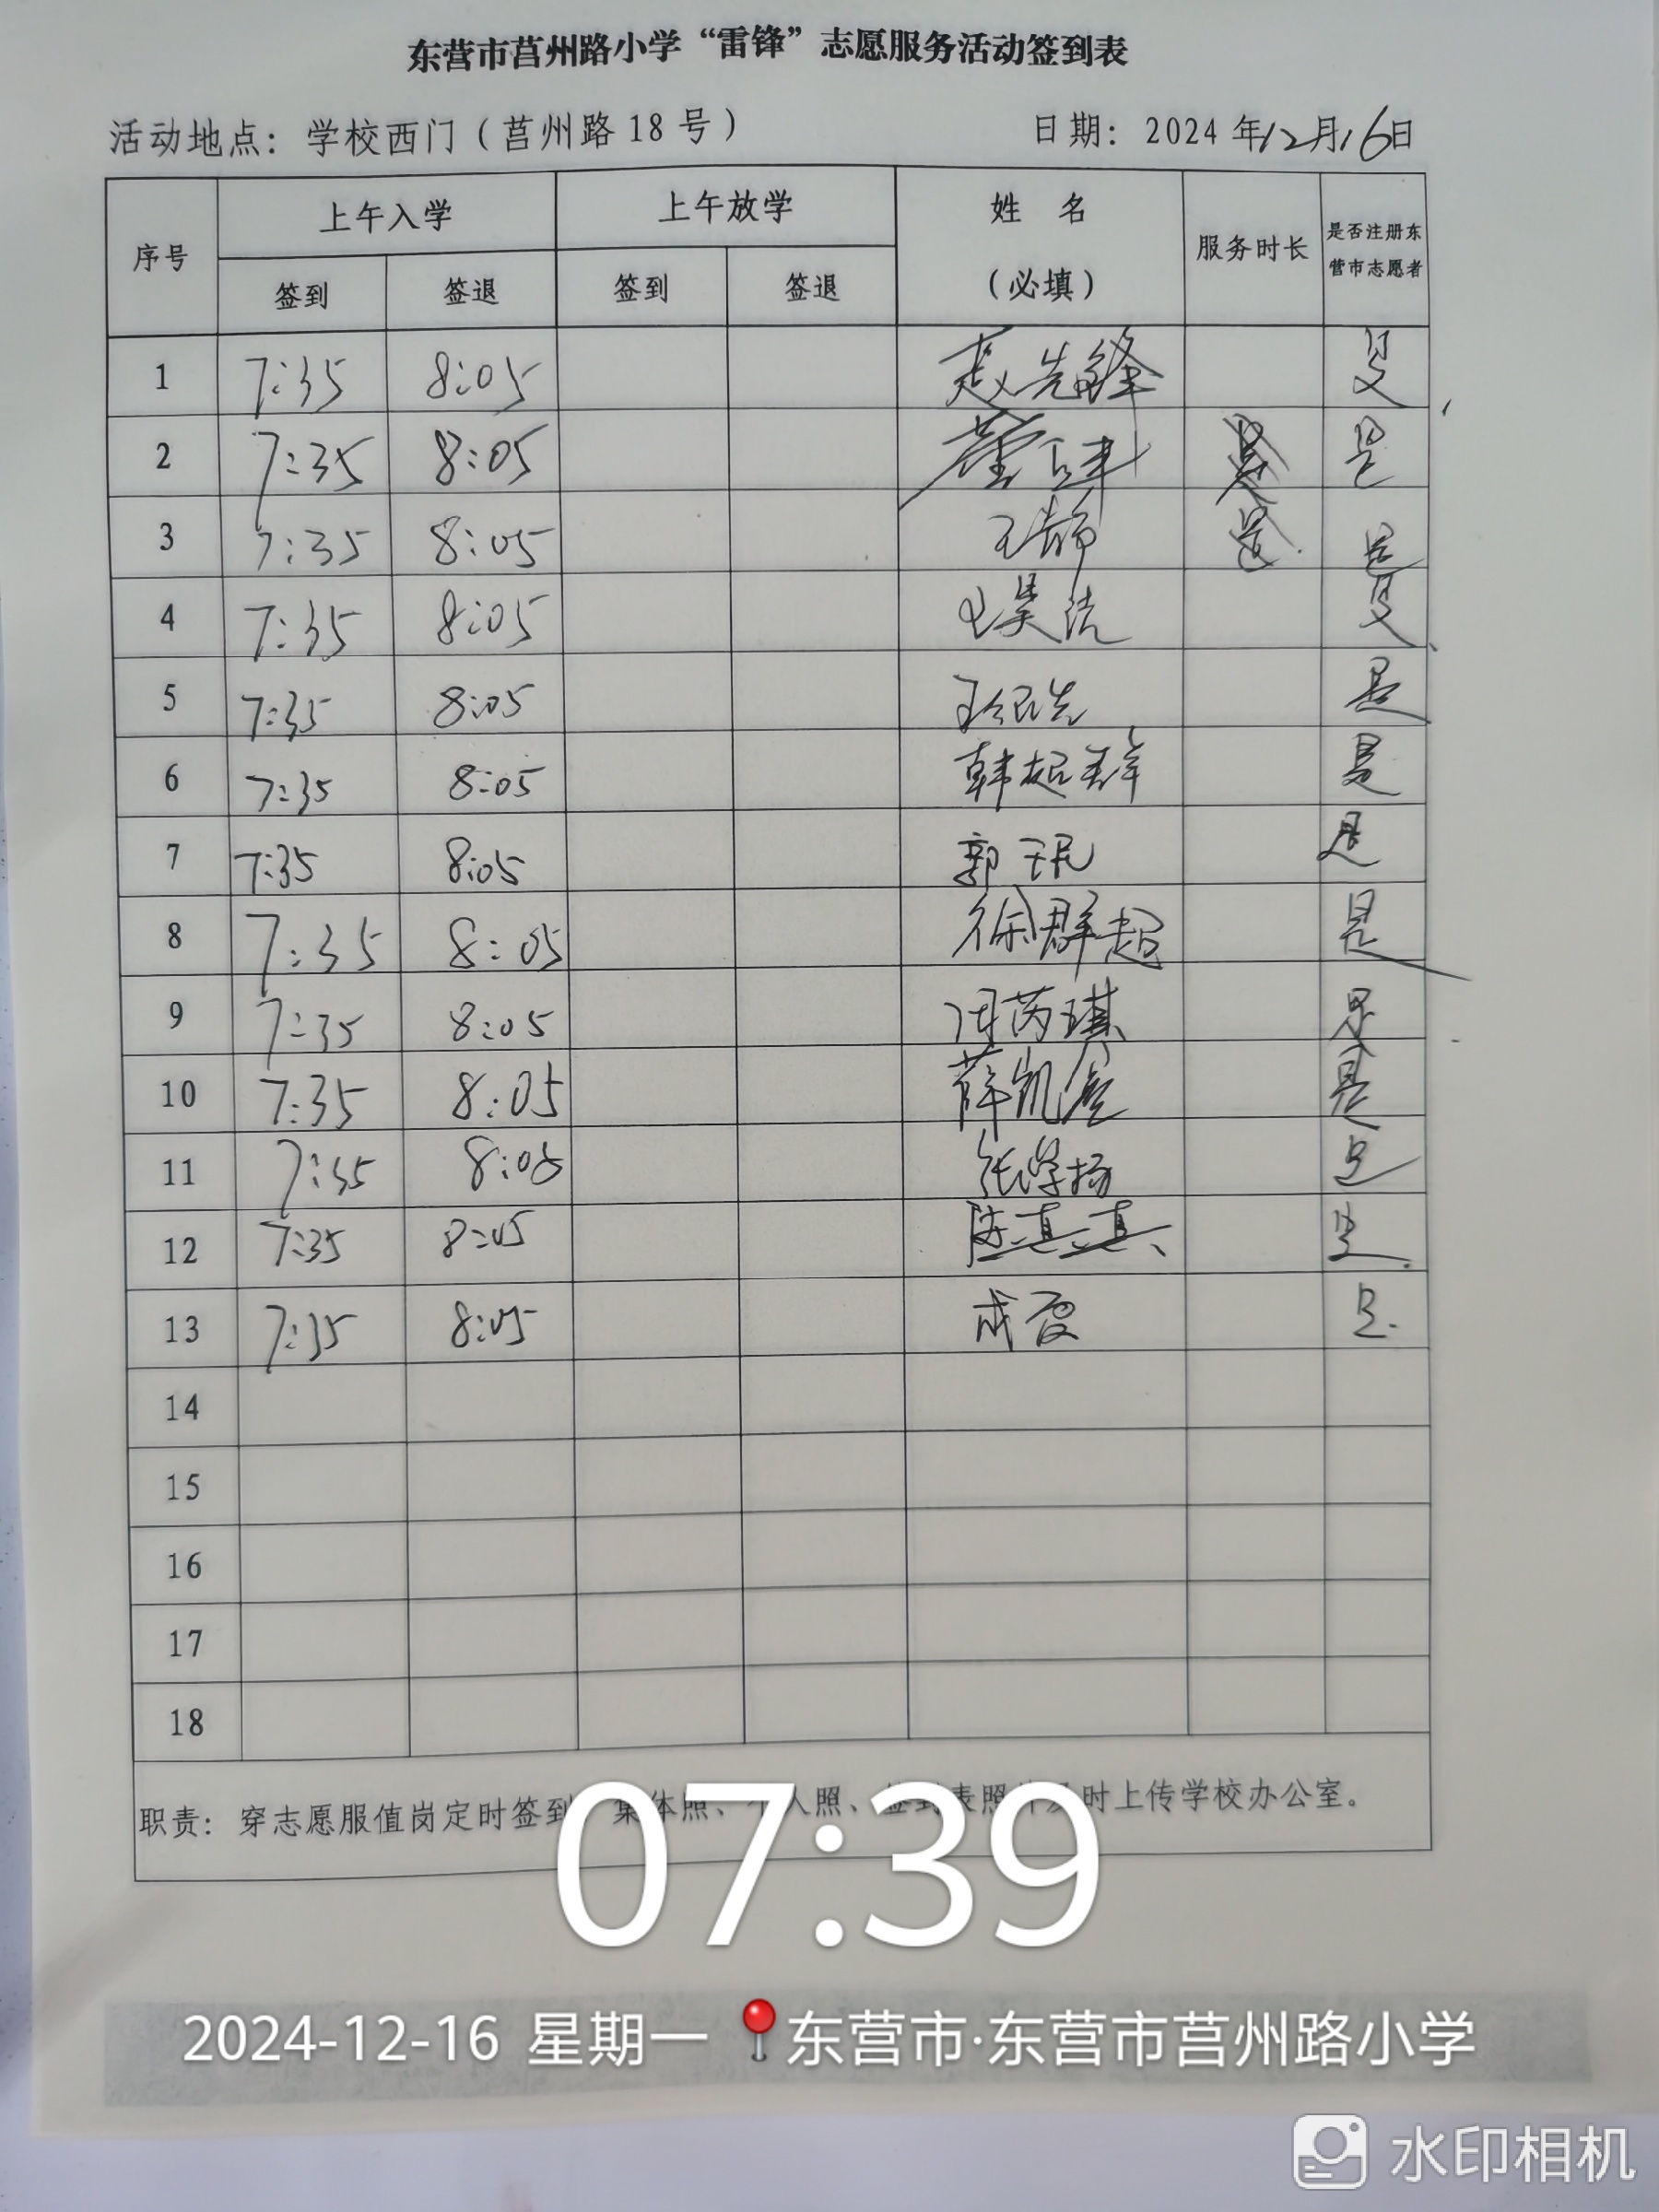 东营市莒州路小学“雷锋”志愿服务活动签到表
活动地点：学校西门（莒州路18号） 日期：2024年12月16日
序号 上午入学 上午放学 姓 名（必填） 服务时长 是否注册东营市志愿者
签到 签退 签到 签退
1 7:35 8:05 赵先锋 是
2 7:35 8:05 是
3 7:35 8:05 王静 是
4 7:35 8:05 是
5 7:35 8:05 是
6 7:35 8:05 韩超群 是
7 7:35 8:05 郭 是
8 7:35 8:05 徐群超 是
9 7:35 8:05 周芮琪 是
10 7:35 8:05 薛凯 是
11 7:35 8:05 张学扬 是
12 7:35 8:05 陈真真 是
13 7:35 8:05 成霞 是
14
15
16
17
18
职责：穿志愿服值岗定时签到 集体照、个人照、签到表照片及时上传学校办公室。
07:39
2024-12-16 星期一 东营市·东营市莒州路小学
水印相机